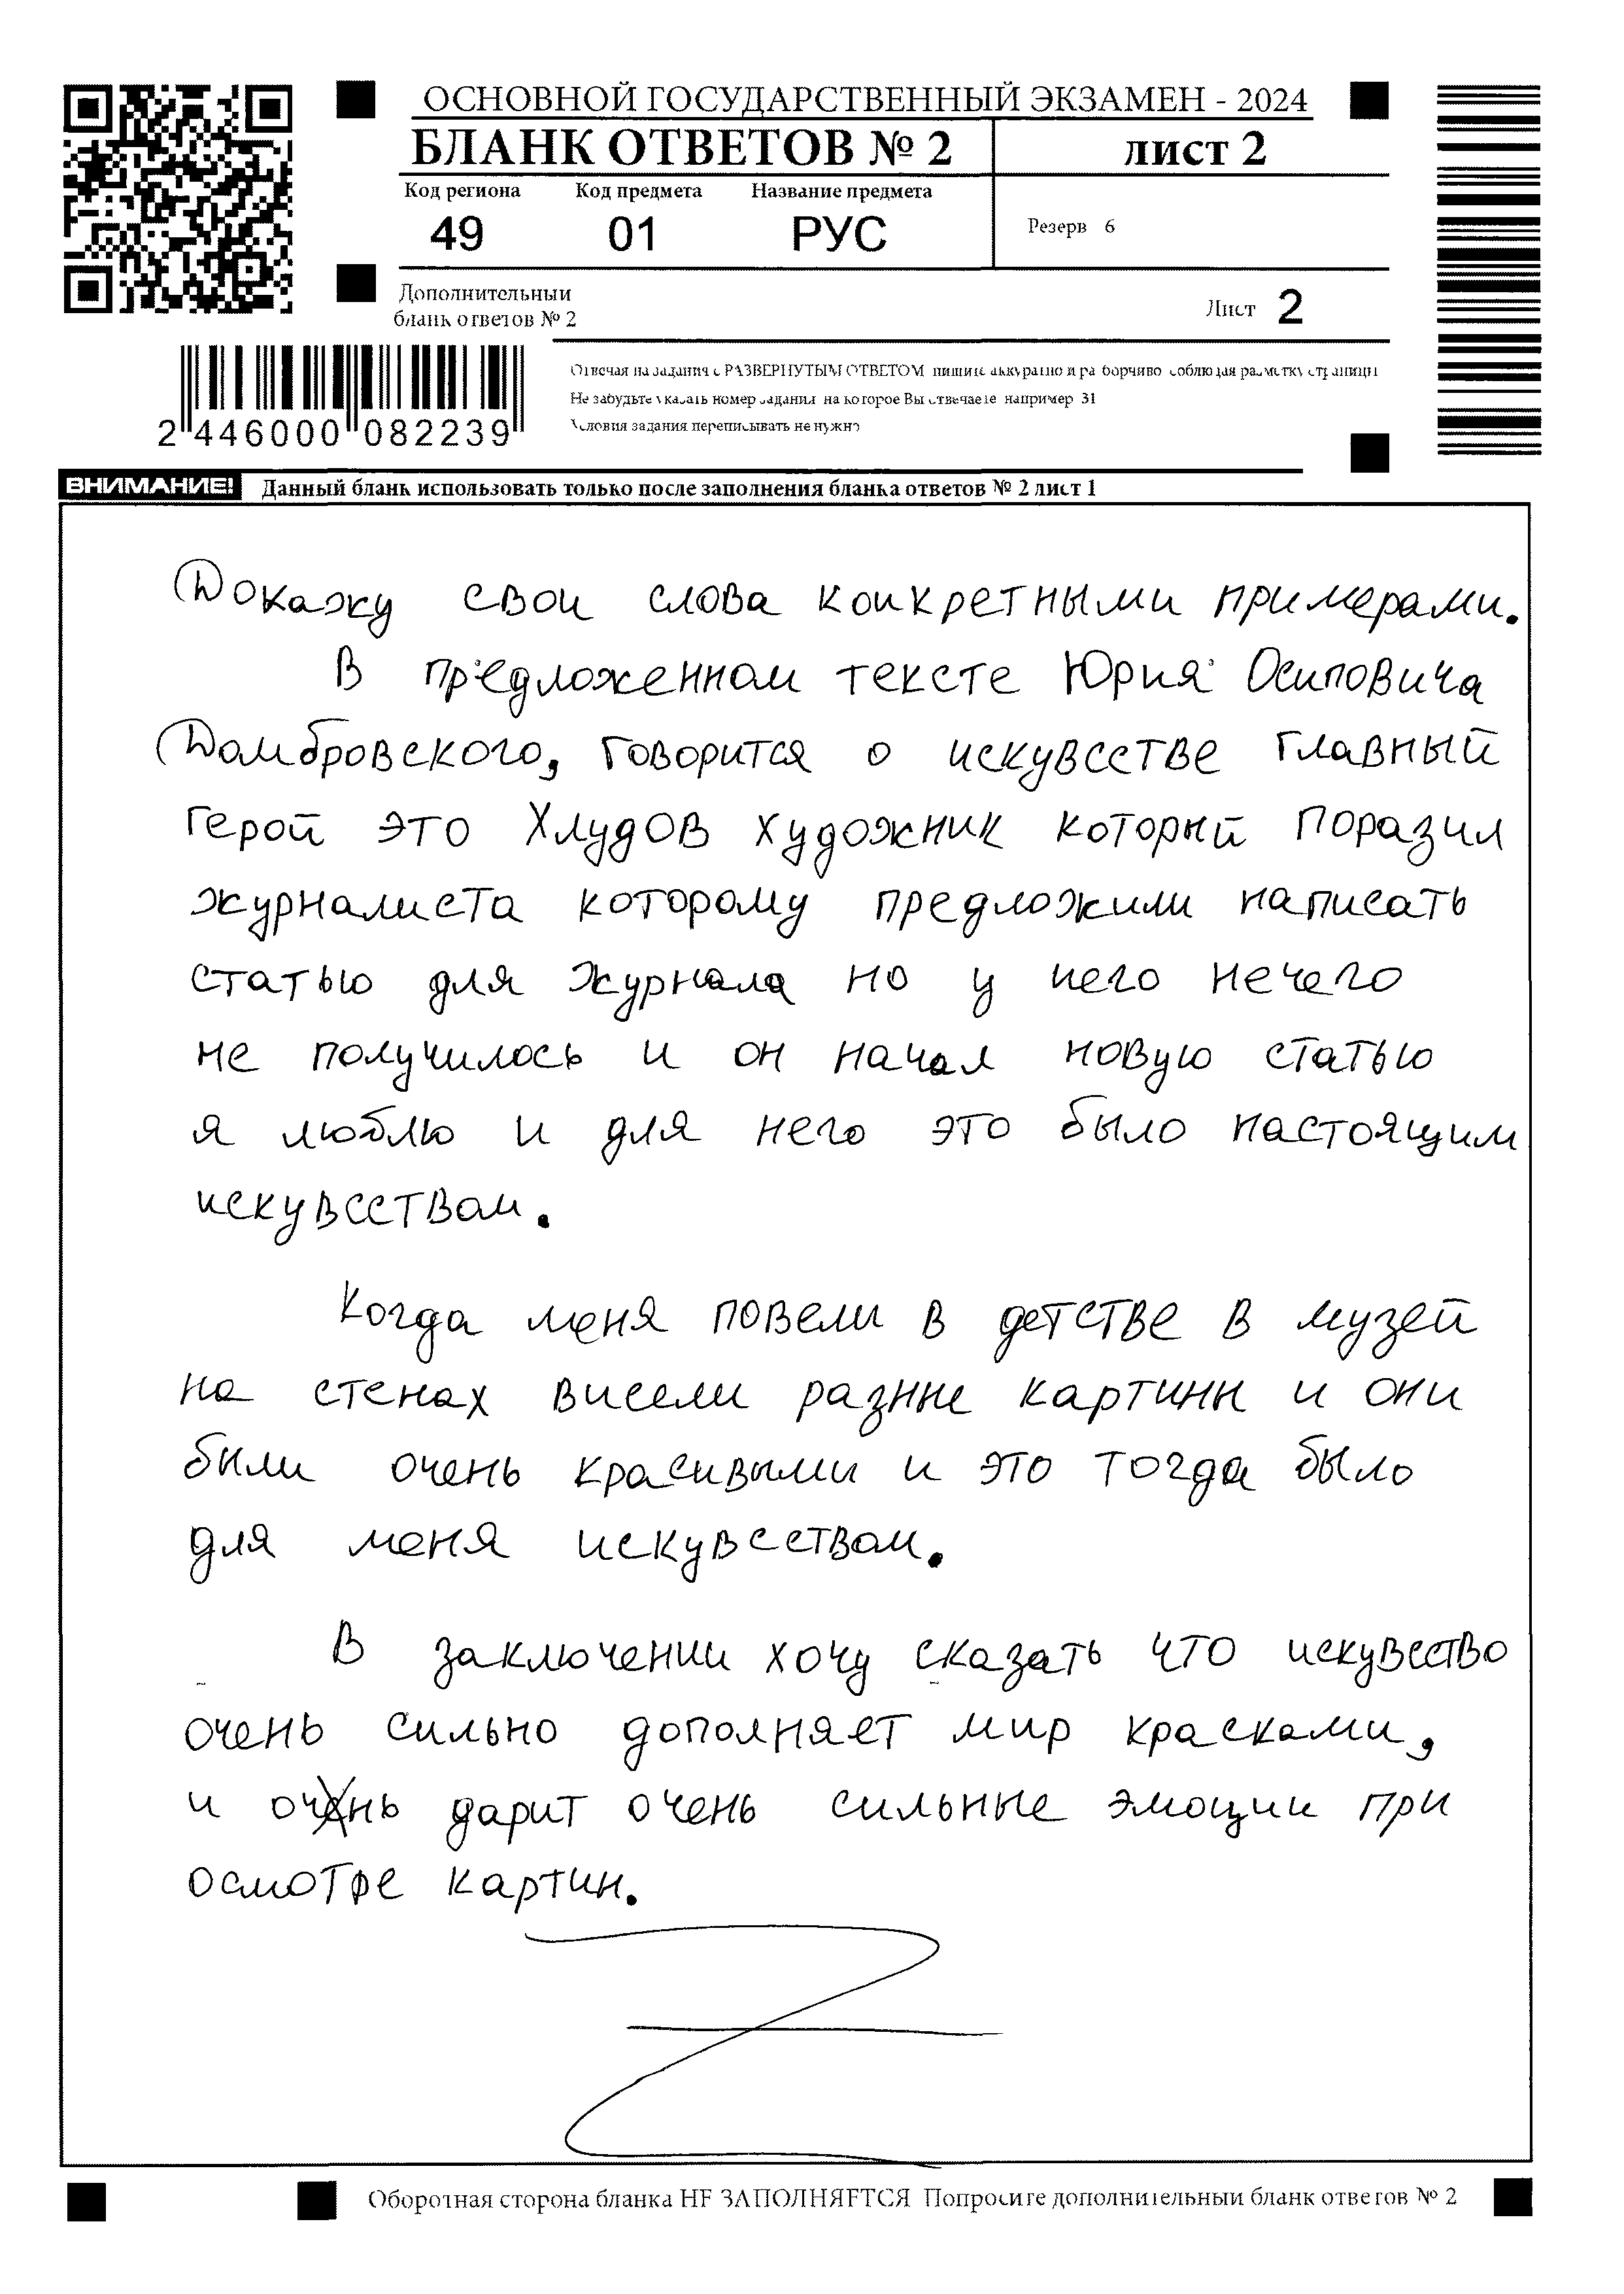 ОСНОВНОЙ ГОСУДАРСТВЕННЫЙ ЭКЗАМЕН - 2024
БЛАНК ОТВЕТОВ № 2 лист 2
Код региона Код предмета Название предмета
49 01 РУС
Резерв 6
Дополнительный
бланк ответов № 2
Лист 2
Отвечая на задания с РАЗВЕРНУТЫМ ОТВЕТОМ пишите аккуратно и разборчиво соблюдая разметку страницы
Не забудьте указать номер задания на которое Вы отвечаете например 31
Условия задания переписывать не нужно
2 446000 082239
ВНИМАНИЕ! Данный бланк использовать только после заполнения бланка ответов № 2 лист 1
Докажу свои слова конкретными примерами.
В предложенном тексте Юрия Осиповича
Домбровского, говорится о искувсстве главный
герой это Хлудов художник который поразил
журналиста которому предложили написать
статью для журнала но у него нечего
не получилось и он начал новую статью
я люблю и для него это было настоящим
искувсством.
Когда меня повели в детстве в музей
на стенах висели разнне картинн и они
были очень красивыми и это тогда было
для меня искувсством.
В заключении хочу сказать что искувсство
очень сильно дополняет мир красками,
и очень дарит очень сильные эмоции при
осмотре картин.
Оборотная сторона бланка НЕ ЗАПОЛНЯЕТСЯ Попросите дополнительный бланк ответов № 2